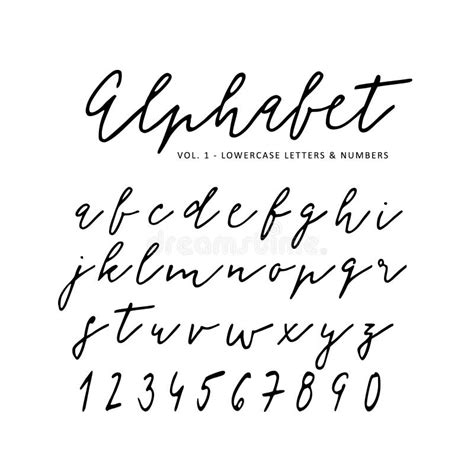 Alphabet
VOL. 1 - LOWERCASE LETTERS & NUMBERS
a b c d e f g h i
dreamstime.
j k l m n o p q r
s t u v w x y z
1 2 3 4 5 6 7 8 9 0